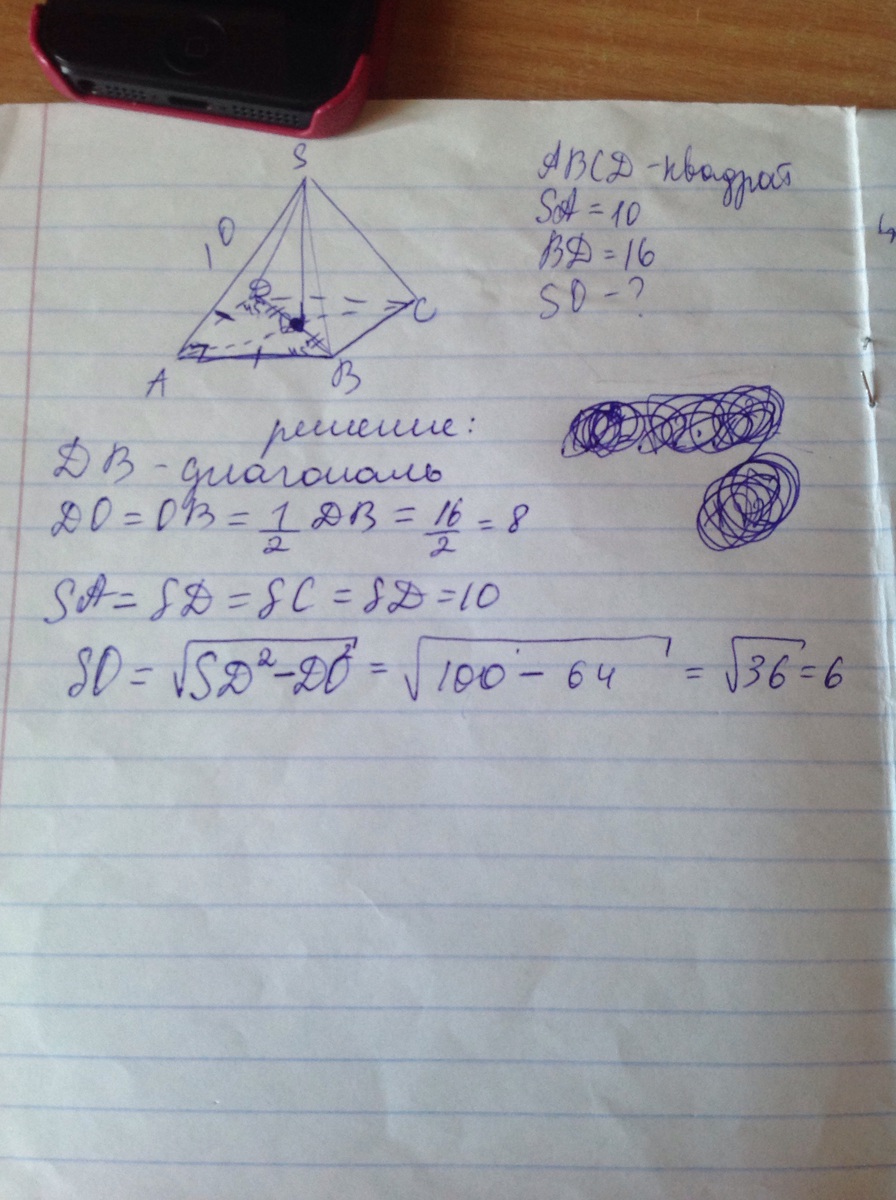 S
10
D
O
C
A
B
45
45
ABCD - квадрат
SA = 10
BD = 16
SO - ?
решение:
DB - диагональ
DO = OB = 1/2 DB = 16/2 = 8
SA = SD = SC = SD = 10
SO = √SD² - DO² = √100 - 64 = √36 = 6